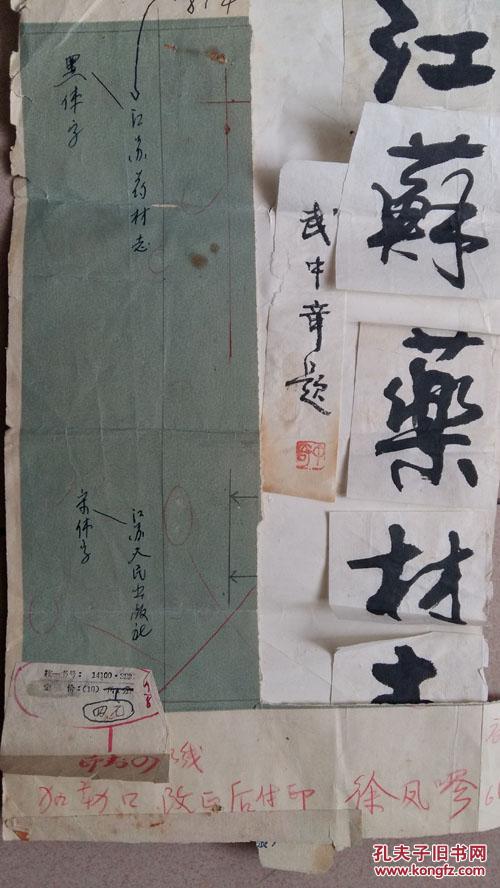 江
蘇
藥
材
武中奇题
江苏药材志
黑体字
江苏人民出版社
宋体字
统一书号：14100·
定价：(10)
四元
线
加勒口 改正后付印
孔夫子旧书网
www.kongfz.com